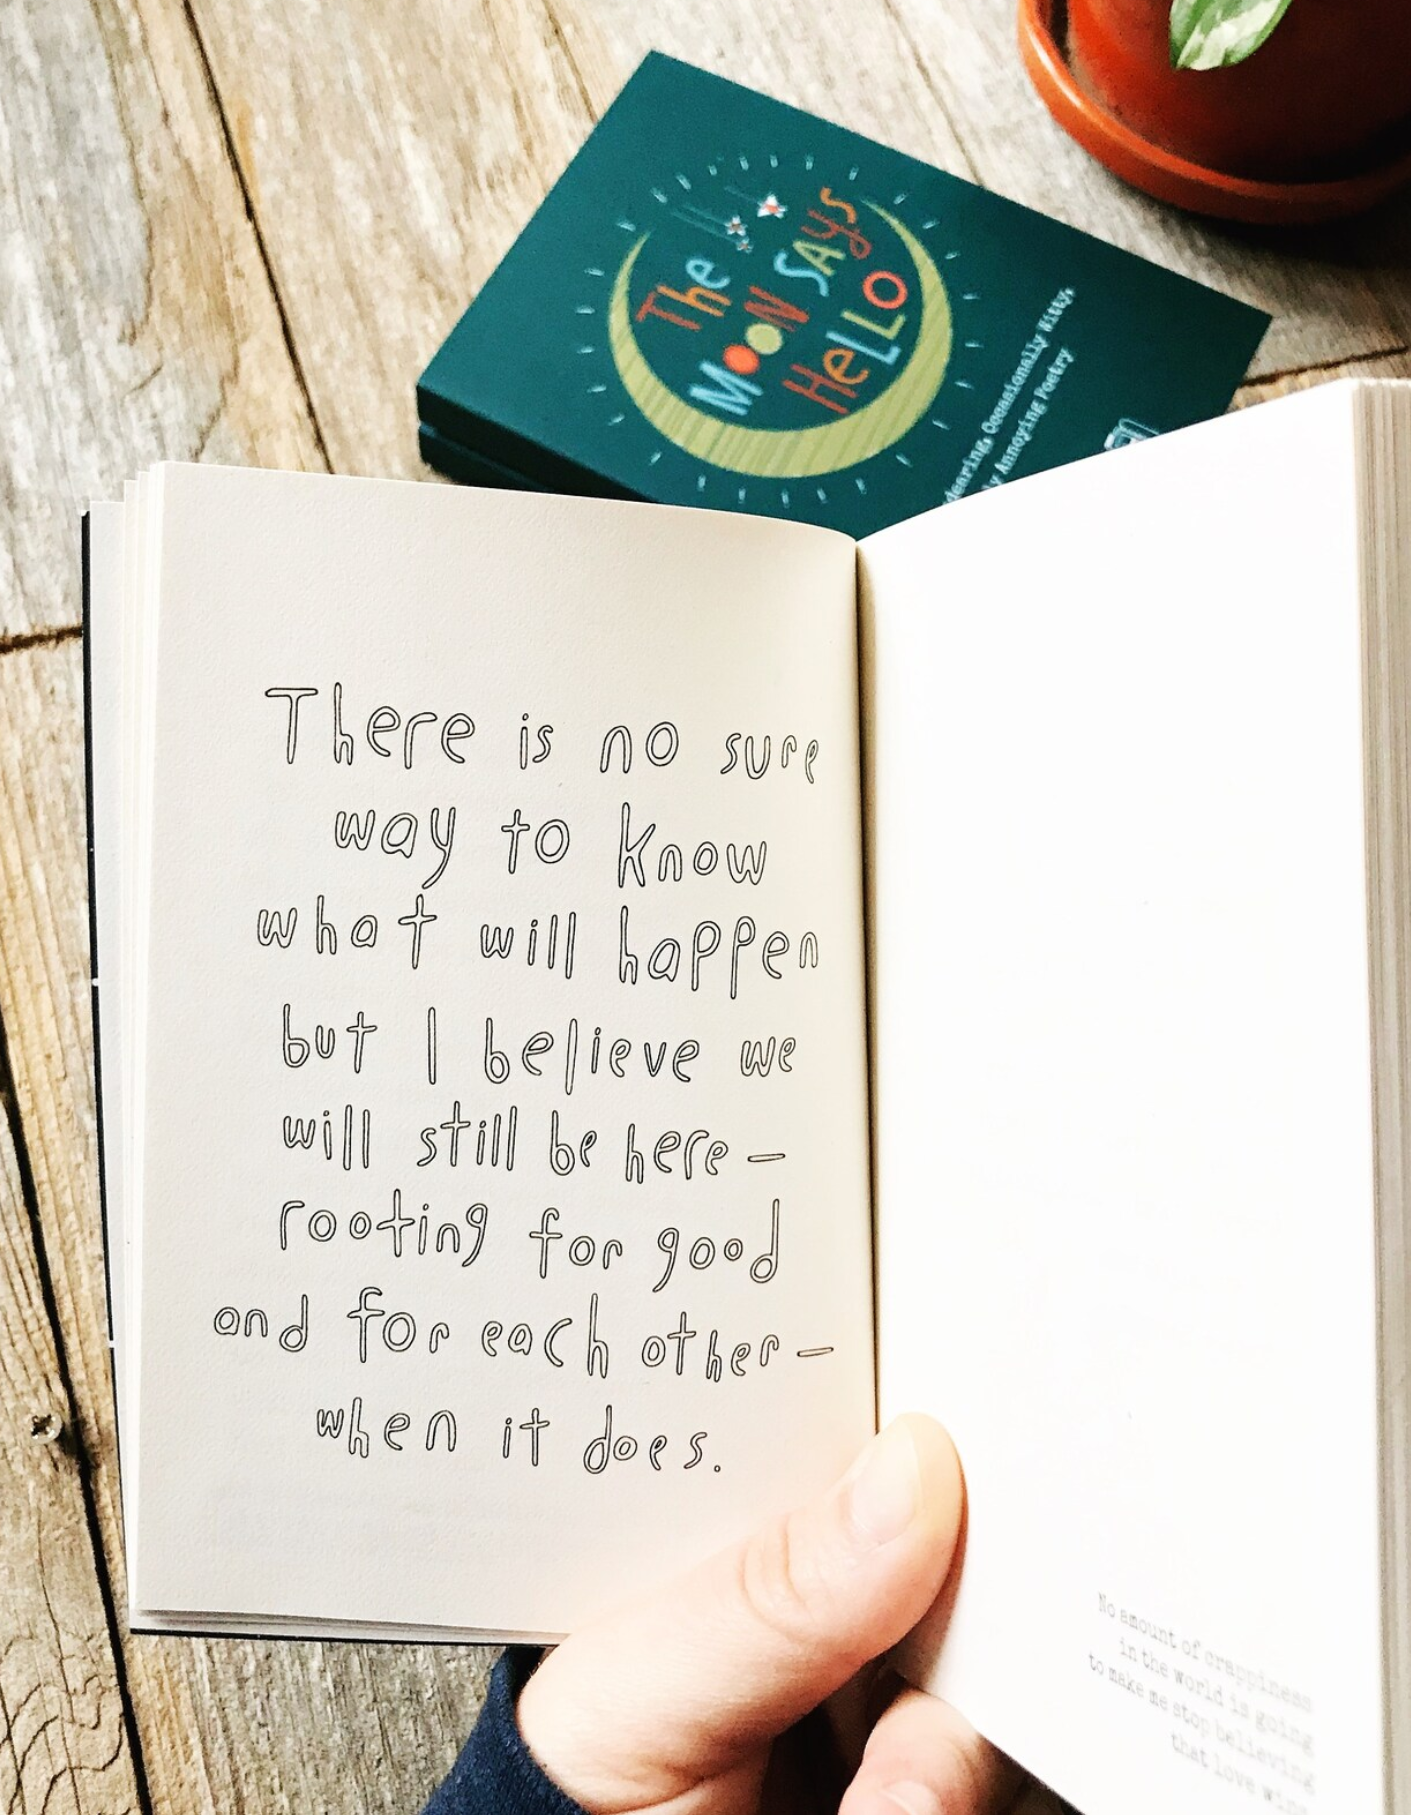 The
MOON SAYS
HeLLO
dearing, Occasionally Witty,
ly Annoying Poetry
There is no sure
way to know
what will happen
but I believe we
will still be here—
rooting for good
and for each other—
when it does.
No amount of crappiness
in the world is going
to make me stop believing
that love wins